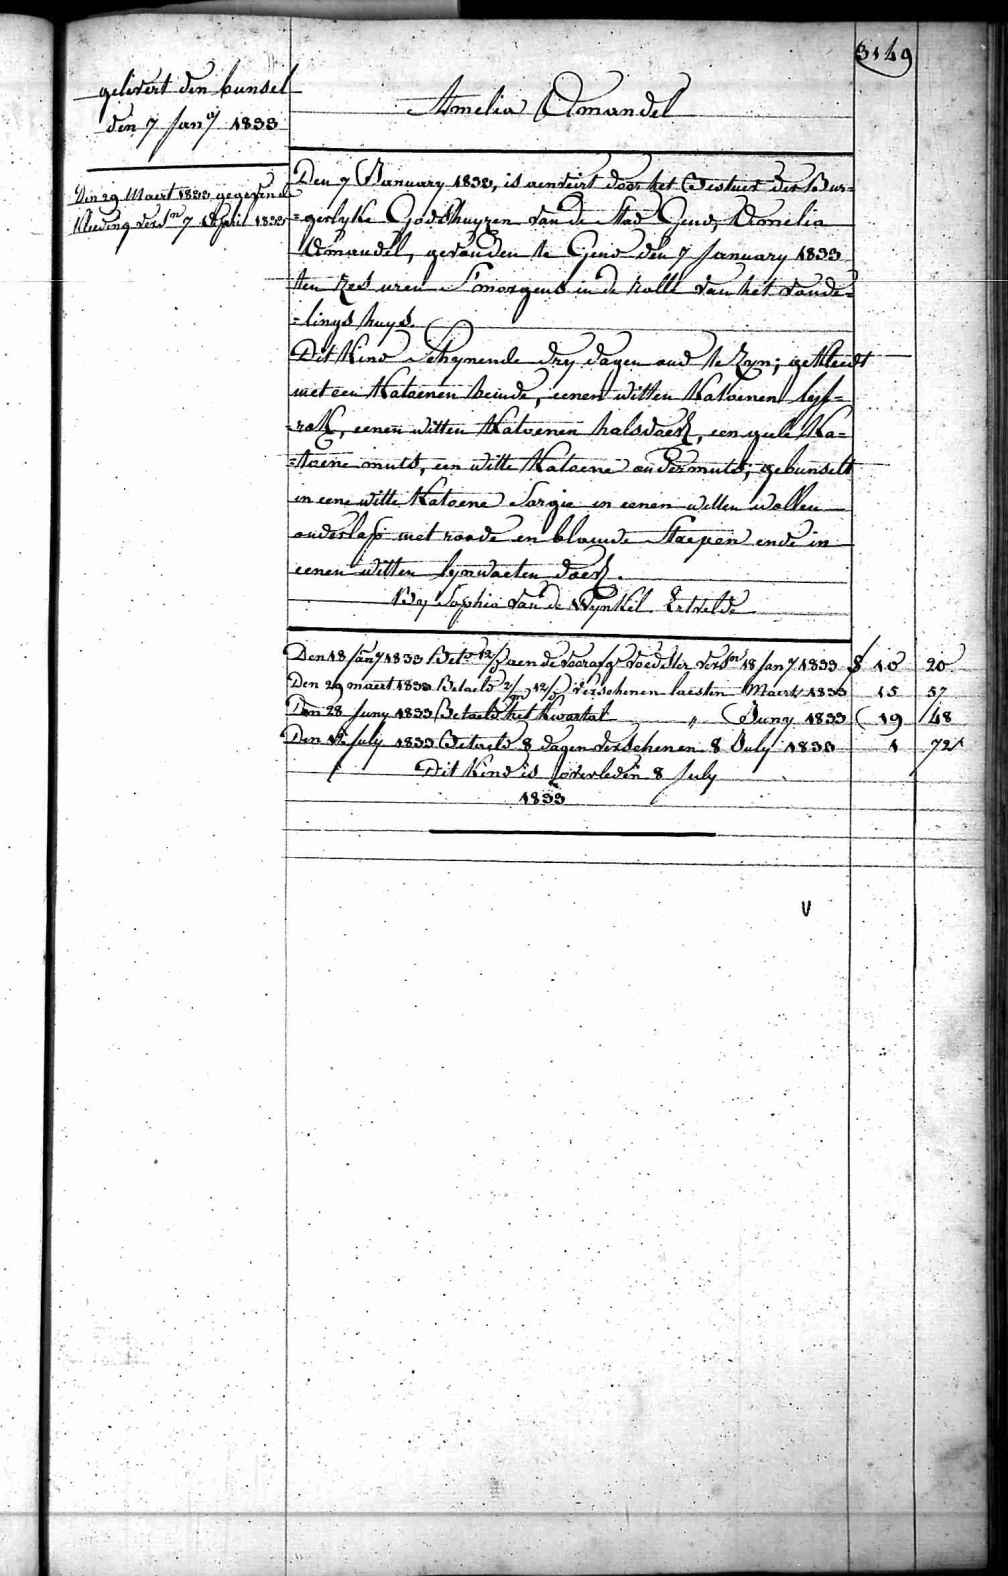 3149
gelivert den bunsel
den 7 Jany 1833
Amelia Amandel
Den 29 Maert 1833 gegeven de
Kleeding versn 7 April 1833
Den 7 January 1833, is aenveirt door het Bestuer der Bur=
=gerlyke Godshuyzen van de Stad Gend, Amelia
Amandel, gevonden te Gend den 7 January 1833
ten zes uren S'morgens in de rolle van het vonde=
=lings huys.
Dit Kind Schynende dry dagen oud te zyn; gekleedt
met een Katoenen hemde, eenen witten Katoenen lyf=
=rok, eenen witten Katoenen halsdoek, een geele Ka=
=toene muts, een witte Katoene ondermuts; gebunselt
in eene witte Katoene Sargie in eenen witten wollen
onderlap met roode en blauwde Staepen ende in
eenen witten lynwaeten doek.
By Sophia Van de Wynkel Ertvelde
Den 18 Jany 1833 Beta 12/ aen de voorafge voedster versn 18 Jany 1833 f 10 20
Den 29 maert 1833 Betaeld 2/m 12/d verschenen laesten Maert 1833 15 57
Den 28 Juny 1833 Betaeld het kwartal " Juny 1833 19 48
Den July 1833 Betaeld 8 dagen verschenen 8 July 1833 1 72
Dit Kind is overleden 8 July
1833